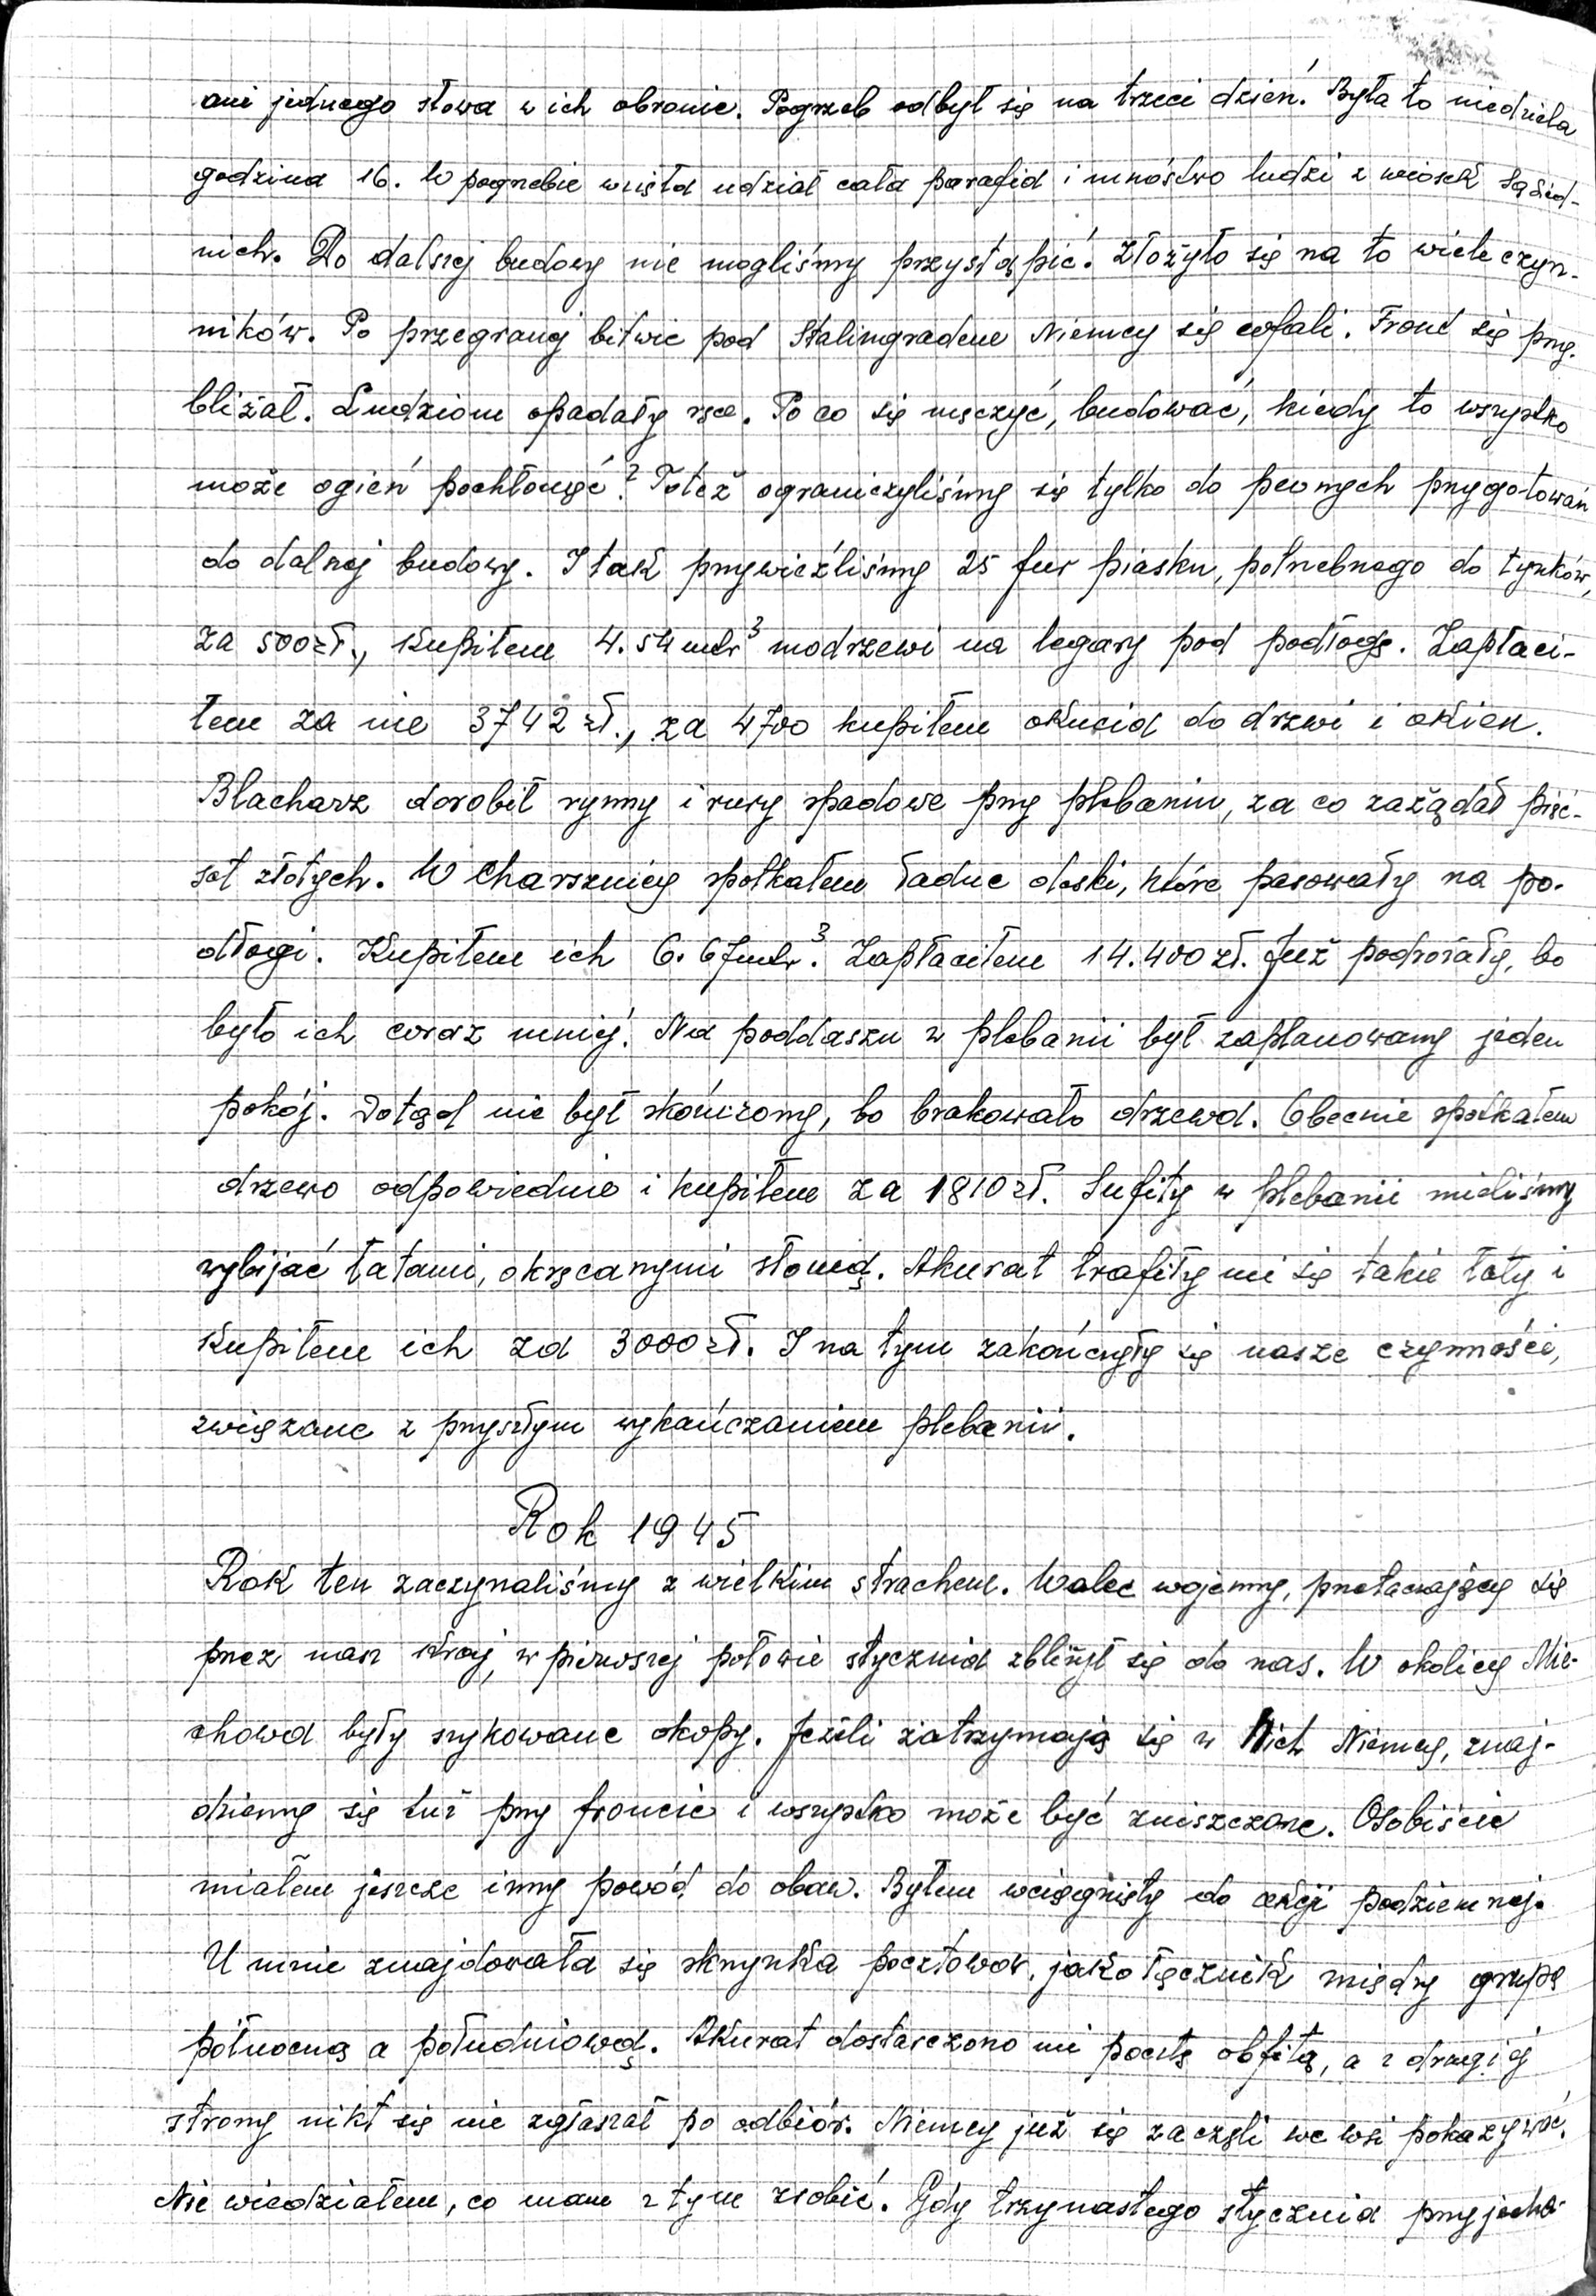 ani jednego słowa w ich obronie. Pogrzeb odbył się na trzeci dzień. Była to niedziela
godzina 16. W pogrzebie wzięła udział cała parafia i mnóstwo ludzi z wiosek sąsied-
nich. Do dalszej budowy nie mogliśmy przystąpić. Złożyło się na to wiele czyn-
ników. Po przegranej bitwie pod Stalingradem Niemcy się cofali. Front się przy-
bliżał. Ludziom opadały ręce. Po co się męczyć, budować, kiedy to wszystko
może ogień pochłonąć? Toteż ograniczyliśmy się tylko do pewnych przygotowań
do dalszej budowy. I tak przywieźliśmy 25 fur piasku, potrzebnego do tynków,
za 500 zł., kupiłem 4.54 mtr³ modrzewi na legary pod podłogę. Zapłaci-
łem za nie 3742 zł., za 4700 kupiłem okucia do drzwi i okien.
Blacharz dorobił rynny i rury spadowe przy plebanii, za co zażądał pięć-
set złotych. W Charsznicy spotkałem ładne deski, które pasowały na po-
dłogi. Kupiłem ich 6.67 mtr³. Zapłaciłem 14.400 zł. Już podrożały, bo
było ich coraz mniej. Na poddaszu w plebanii był zaplanowany jeden
pokój. Dotąd nie był skończony, bo brakowało drzewa. Obecnie spotkałem
drzewo odpowiednie i kupiłem za 1810 zł. Sufity w plebanii mieliśmy
wybijać łatami, okręcanymi słomą. Akurat trafiły mi się takie łaty i
kupiłem ich za 3000 zł. I na tym zakończyły się nasze czynności,
związane z przyszłym wykańczaniem plebanii.
Rok 1945
Rok ten zaczynaliśmy z wielkim strachem. Walec wojenny, przetaczający się
przez nasz kraj, w pierwszej połowie stycznia zbliżył się do nas. W okolicy Mie-
chowa były szykowane okopy. Jeżeli zatrzymają się w nich Niemcy, znaj-
dziemy się tuż przy froncie i wszystko może być zniszczone. Osobiście
miałem jeszcze inny powód do obaw. Byłem wciągnięty do akcji podziemnej.
U mnie znajdowała się skrzynka pocztowa, jako łącznik między grupą
północną a południową. Akurat dostarczono mi pocztę obfitą, a z drugiej
strony nikt się nie zgłaszał po odbiór. Niemcy już się zaczęli we wsi pokazywać.
Nie wiedziałem, co mam z tym zrobić. Gdy trzynastego stycznia przyjecha-